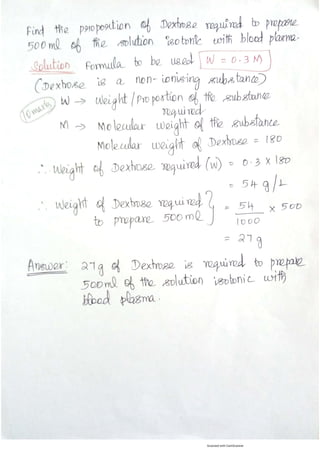 Find the proportion of Dextrose required to prepare
500ml of the solution isotonic with blood plasma.
Solution Formula to be used W = 0.3 M
(Dextrose is a non-ionising substance)
W → Weight/Proportion of the substance
required
M → Molecular weight of the substance
Molecular weight of Dextrose = 180
∴ Weight of Dextrose required (W) = 0.3 x 180
= 54 g/L
∴ Weight of Dextrose required to prepare 500ml } = 54/1000 x 500
= 27 g
Answer: 27g of Dextrose is required to prepare
500ml of the solution isotonic with
blood plasma.
Scanned with CamScanner